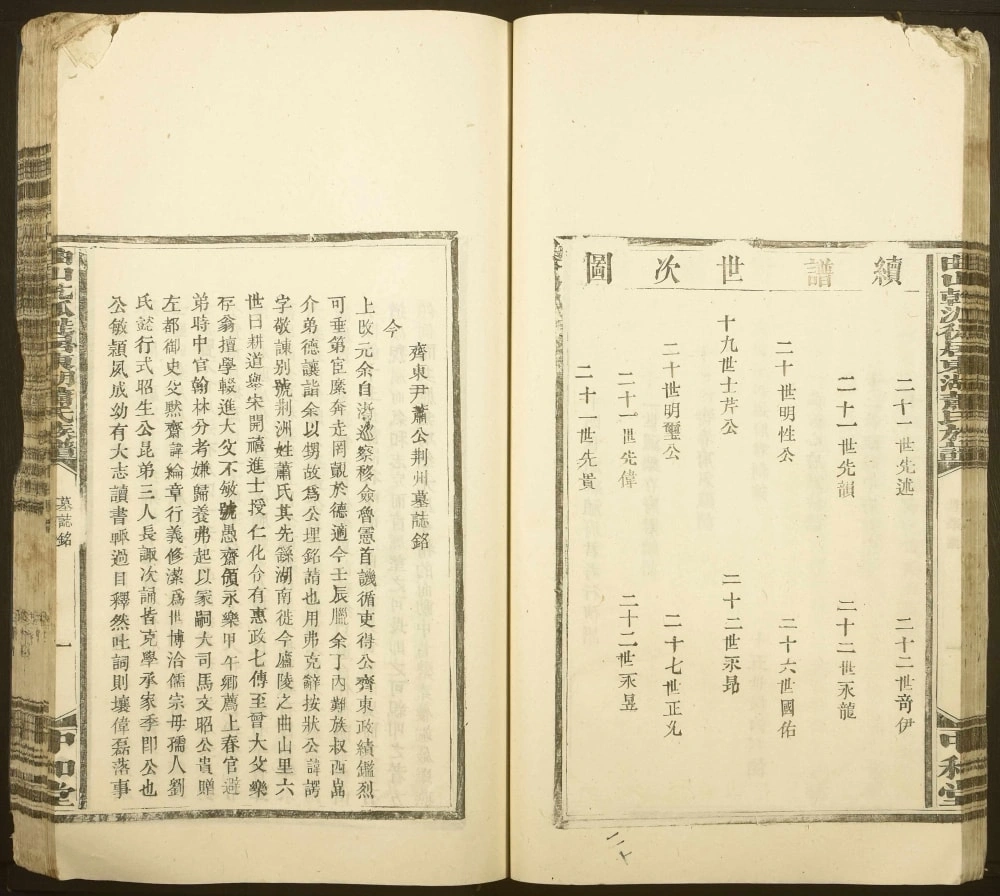 續譜世次圖
二十一世先述
二十二世奇伊
二十一世先韻
二十二世永龍
二十世明性公
二十六世國佑
十九世士芹公
二十二世永昻
二十世明璽公
二十七世正允
二十一世先偉
二十二世永昱
二十一世先貴
齊東尹蕭公荆州墓誌銘
今
上攺元余自浙巡察移僉魯憲首譏循吏得公齊東政績鑑烈
可垂第宦廉奔走罔覿於德適今壬辰臘余丁內難族叔西畐
介弟德讓詣余以甥故爲公埋銘請也用弗克辭按狀公諱諤
字敬諫别號荆洲姓蕭氏其先繇湖南徙今廬陵之曲山里六
世日耕道舉宋開禧進士授仁化令有惠政七傳至曾大父樂
存翁擅學輟進大父不敏號愚齋領永樂甲午鄉薦上春官避
弟時中官翰林分考嫌歸養弗起以冢嗣大司馬文昭公貴贈
左都御史父黙齋諱綸章行義修潔爲世博洽儒宗毋孺人劉
氏懿行式昭生公昆弟三人長諏次詞皆克學承家季卽公也
公敏頴夙成幼有大志讀書輙過目釋然吐詞則壤偉磊落事
墓誌銘
一
中和堂
中和堂